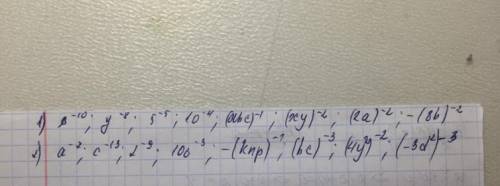 1) в⁻¹⁰; y⁻⁸; 5⁻⁵; 10⁻⁴; (abc)⁻¹; (xy)⁻²; (2a)⁻²; -(8b)⁻²
2) a⁻²; c⁻¹³; 2⁻⁹; 106⁻³; -(knp)⁻⁷; (bc)⁻³; (4y³)⁻²; (-3d²)⁻³